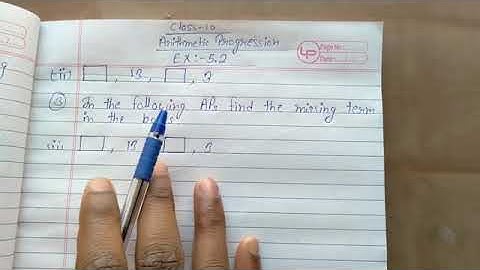 Class-10
Arithmetic Progression
EX:-5.2
Page No.
Date
(ii) , 13, , 3
③ In the following APs find the missing term
in the boxes
(ii) , 13 , 3